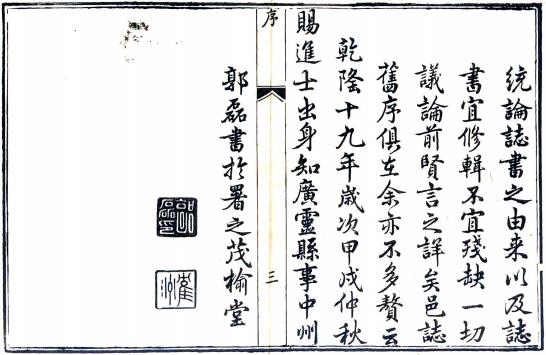 統論誌書之由来以及誌
書宜修輯不宜殘缺一切
議論前賢言之詳矣邑誌
舊序俱在余亦不多贅云
乾隆十九年歲次甲戌仲秋
賜進士出身知廣靈縣事中州
序
三
郭磊書於署之茂榆堂
郭磊之印